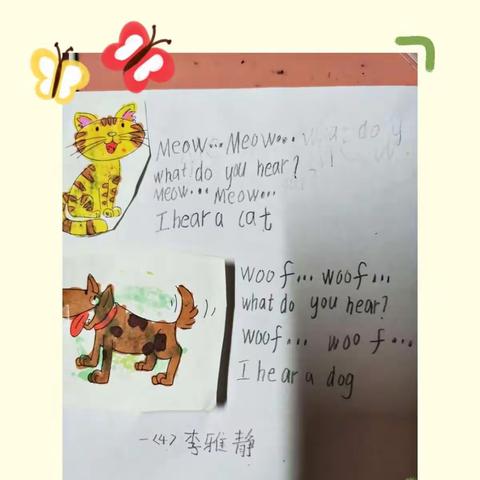 Meow... Meow... what do y
what do you hear?
Meow... Meow...
I hear a cat
woof... woof...
what do you hear?
woof... woof...
I hear a dog
一〈4〉李雅静